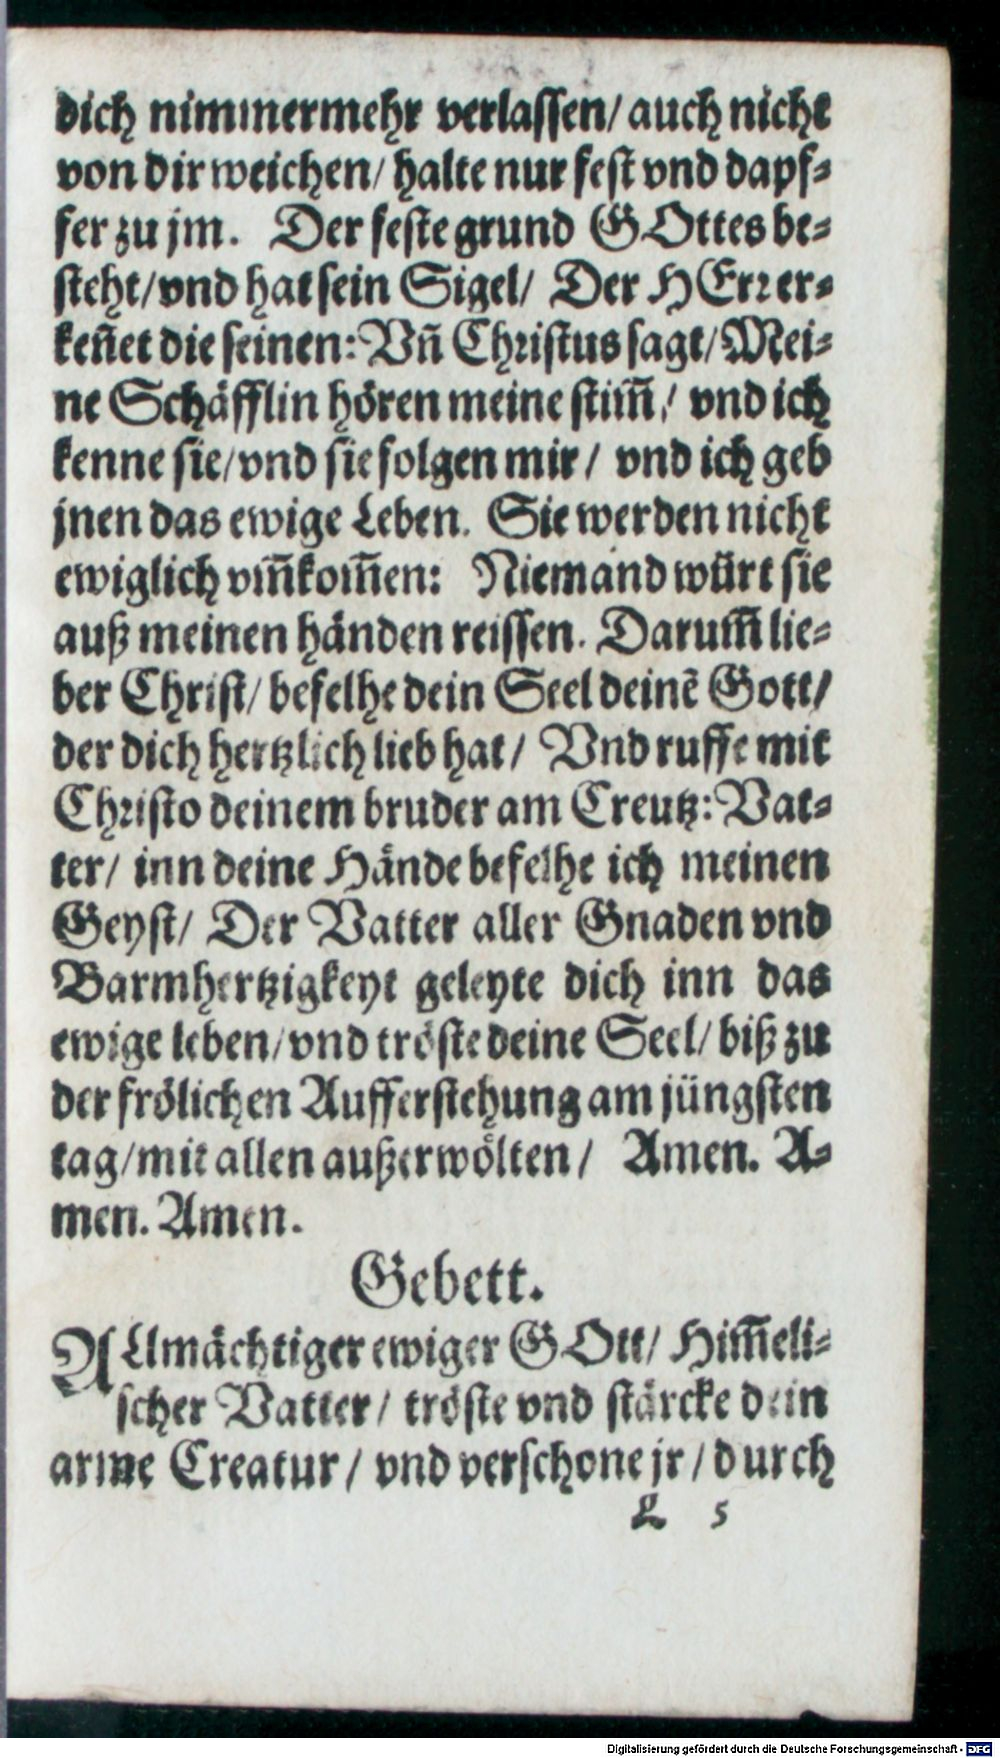 dich nimmermehr verlassen/ auch nicht
von dir weichen/ halte nur fest vnd dapf-
fer zu jm. Der feste grund GOttes be-
steht/ vnd hat sein Sigel/ Der HErr er-
keñet die seinen: Vñ Christus sagt/ Mei-
ne Schäfflin hören meine stim̃/ vnd ich
kenne sie/ vnd sie folgen mir/ vnd ich geb
jnen das ewige Leben. Sie werden nicht
ewiglich vm̃kom̃en: Niemand würt sie
auß meinen händen reissen. Darum̃ lie-
ber Christ/ befelhe dein Seel deinẽ Gott/
der dich hertzlich lieb hat/ Vnd ruffe mit
Christo deinem bruder am Creutz: Vat-
ter/ inn deine Hände befelhe ich meinen
Geyst/ Der Vatter aller Gnaden vnd
Barmhertzigkeyt geleyte dich inn das
ewige leben/ vnd tröste deine Seel/ biß zu
der frölichen Aufferstehung am jüngsten
tag/ mit allen außerwölten/ Amen. A-
men. Amen.
Gebett.
ALlmächtiger ewiger GOtt/ Him̃eli-
scher Vatter/ tröste vnd stärcke dein
arme Creatur/ vnd verschone jr/ durch
L 5
Digitalisierung gefördert durch die Deutsche Forschungsgemeinschaft - DFG